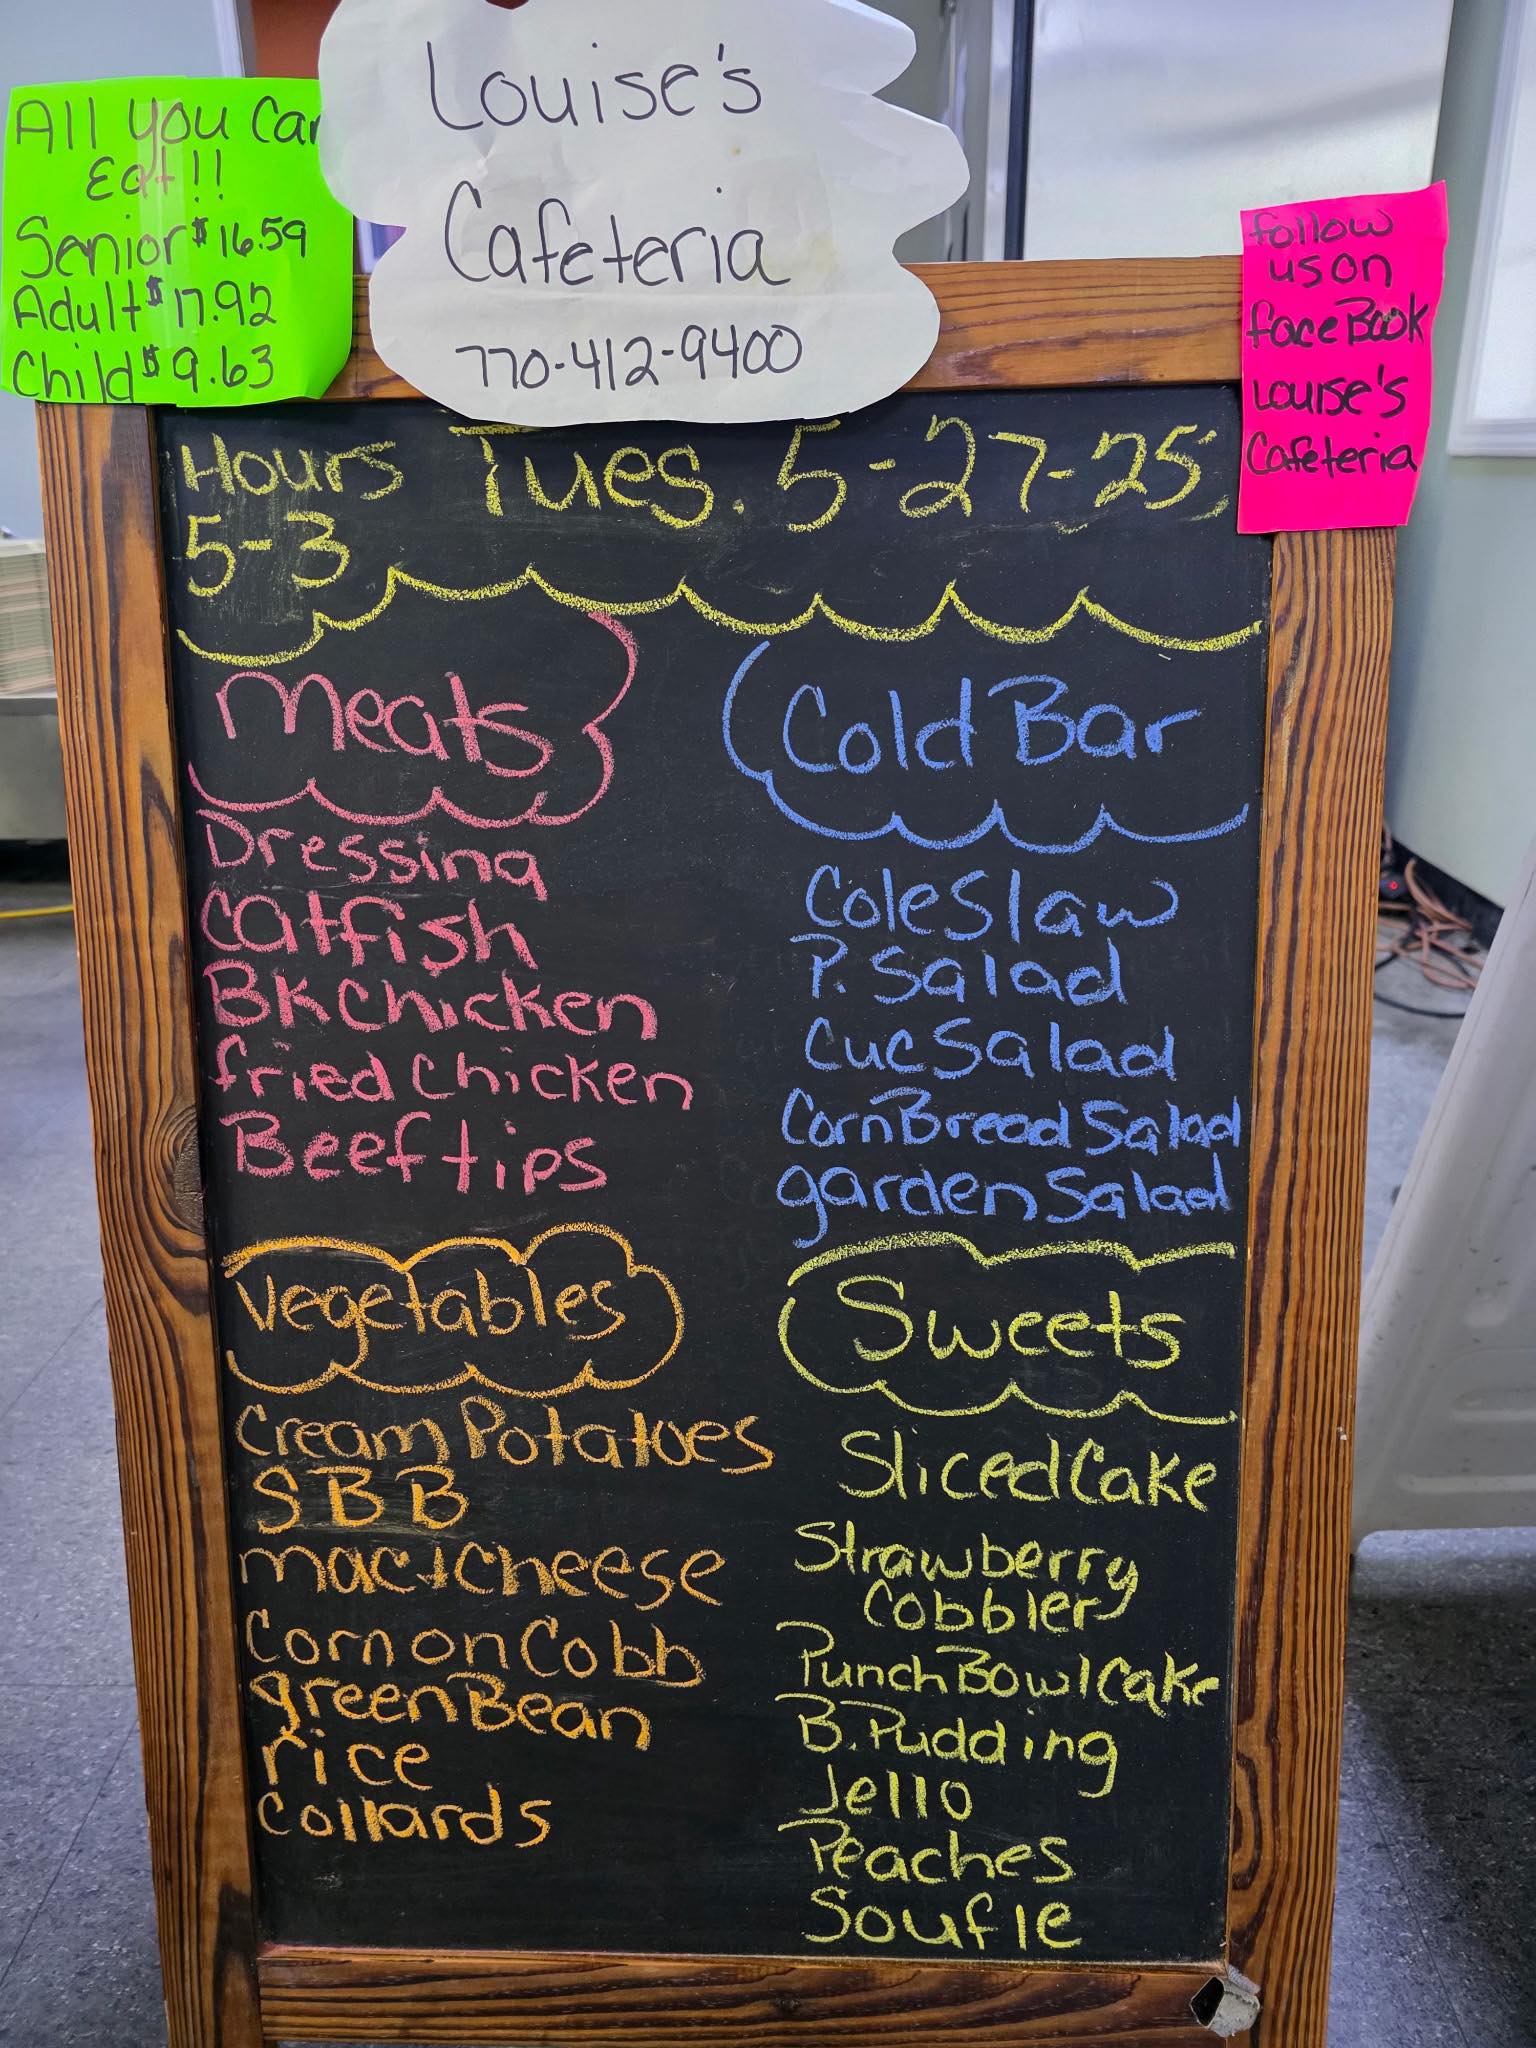 All You Can
Eat!!
Senior $16.59
Adult $17.92
Child $9.63
Louise's
Cafeteria
770-412-9400
follow
us on
faceBook
Louise's
Cafeteria
Hours Tues. 5-27-25
5-3
Meats
Dressing
Catfish
BK Chicken
fried Chicken
Beef tips
Vegetables
Cream Potatoes
SBB
mac+Cheese
Corn on Cobb
green Bean
rice
Collards
Cold Bar
Coleslaw
P. Salad
Cuc Salad
Corn Bread Salad
garden Salad
Sweets
Sliced Cake
Strawberry
Cobbler
Punch Bowl Cake
B. Pudding
Jello
Peaches
Soufle